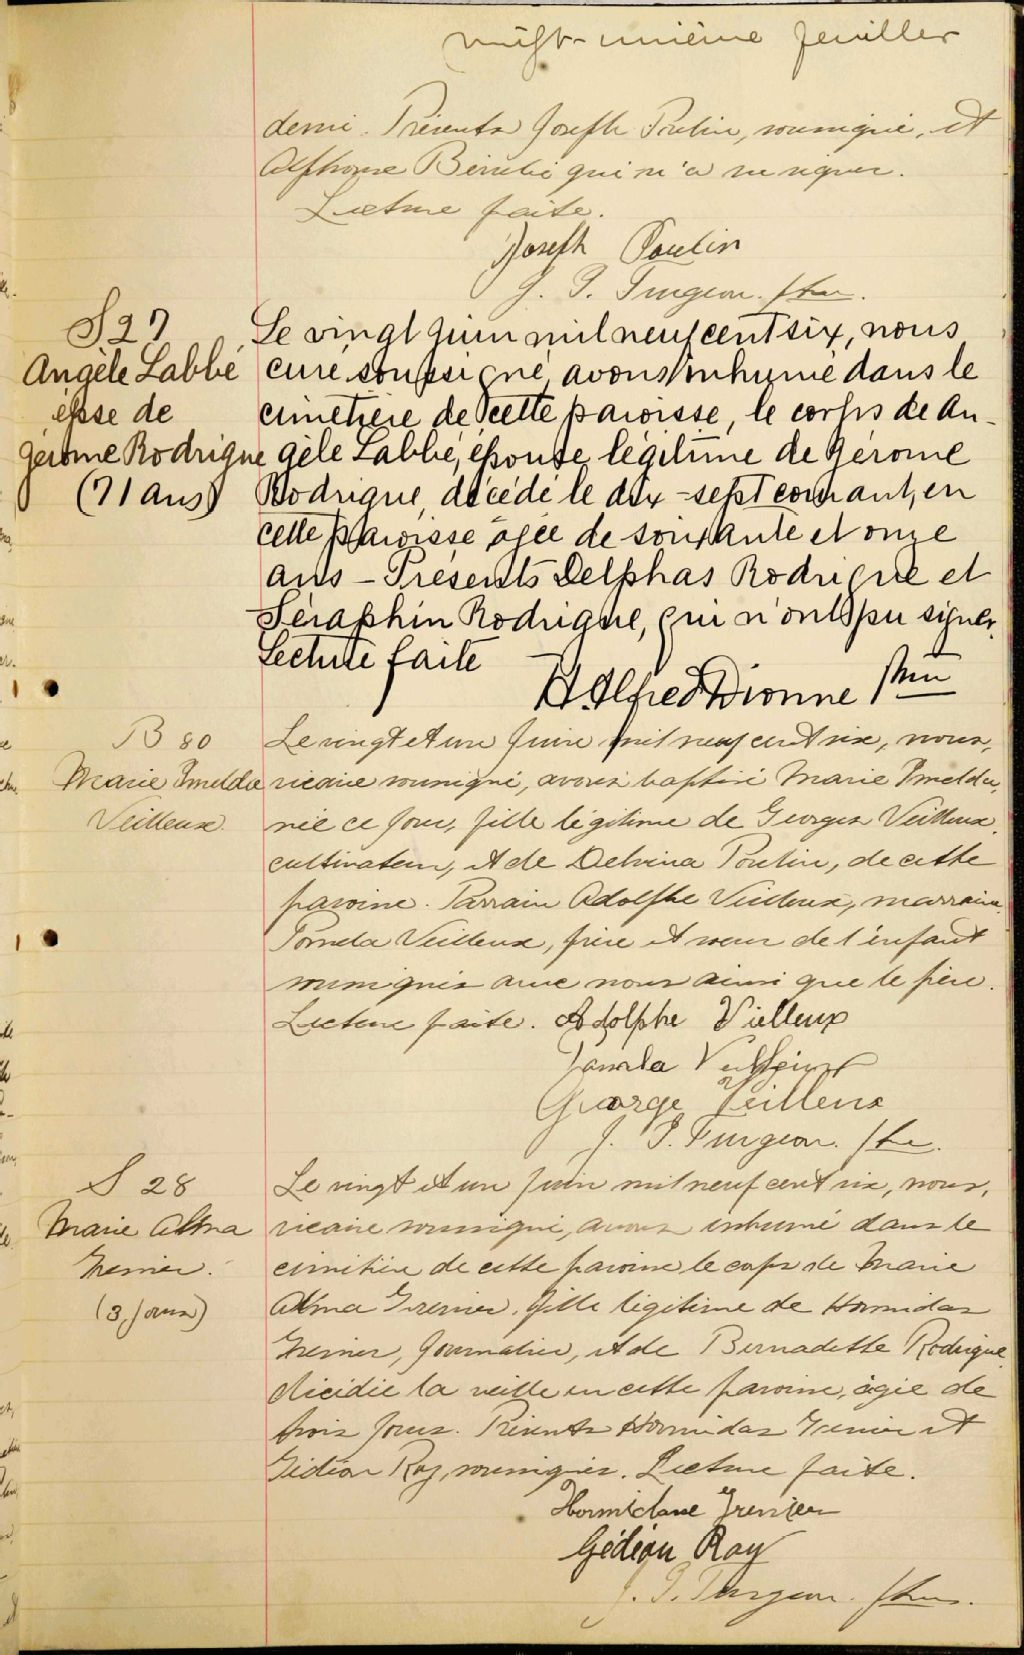 vingt-unième feuillet
demi. Présents Joseph Poulin, soussigné, et
Alphonse Bérubé qui n'a su signer.
Lecture faite.
Joseph Poulin
J. P. Turgeon. Ptre.
S 27
Angèle Labbé
épse de
Gérome Rodrigue
(71 ans)
Le vingt juin mil neuf cent six, nous
curé soussigné, avons inhumé dans le
cimetière de cette paroisse, le corps de An-
gèle Labbé, épouse légitime de Gérome
Rodrigue, décédé le dix-sept courant, en
cette paroisse âgée de soixante et onze
ans - Présents Delphas Rodrigue et
Séraphin Rodrigue, qui n'ont pu signer.
Lecture faite
H. Alfred Dionne ptre
B 80
Marie Imelda
Veilleux.
Le vingt et un Juin mil neuf cent six, nous,
vicaire soussigné, avons baptisé Marie Imelda,
née ce jour, fille légitime de Georges Veilleux,
cultivateur, et de Delvina Poulin, de cette
paroisse. Parrain Adolphe Veilleux, marraine
Veilleux, frère et soeur de l'enfant
soussignés avec nous ainsi que le père.
Lecture faite. Adolphe Vielleux
George Veilleux
J. P. Turgeon. Ptre.
S 28
Marie Alma
Grenier.
(3 jours)
Le vingt et un Juin mil neuf cent six, nous,
vicaire soussigné, avons inhumé dans le
cimitière de cette paroisse le corps de Marie
Alma Grenier, fille légitime de Hormidas
Grenier, journalier, et de Bernadette Rodrigue
décédée la veille en cette paroisse, âgée de
trois jours. Présents Hormidas Grenier et
Gédéon Roy, soussignés. Lecture faite.
Hormidase Grenier
Gédéon Roy
J. P. Turgeon. Ptre.